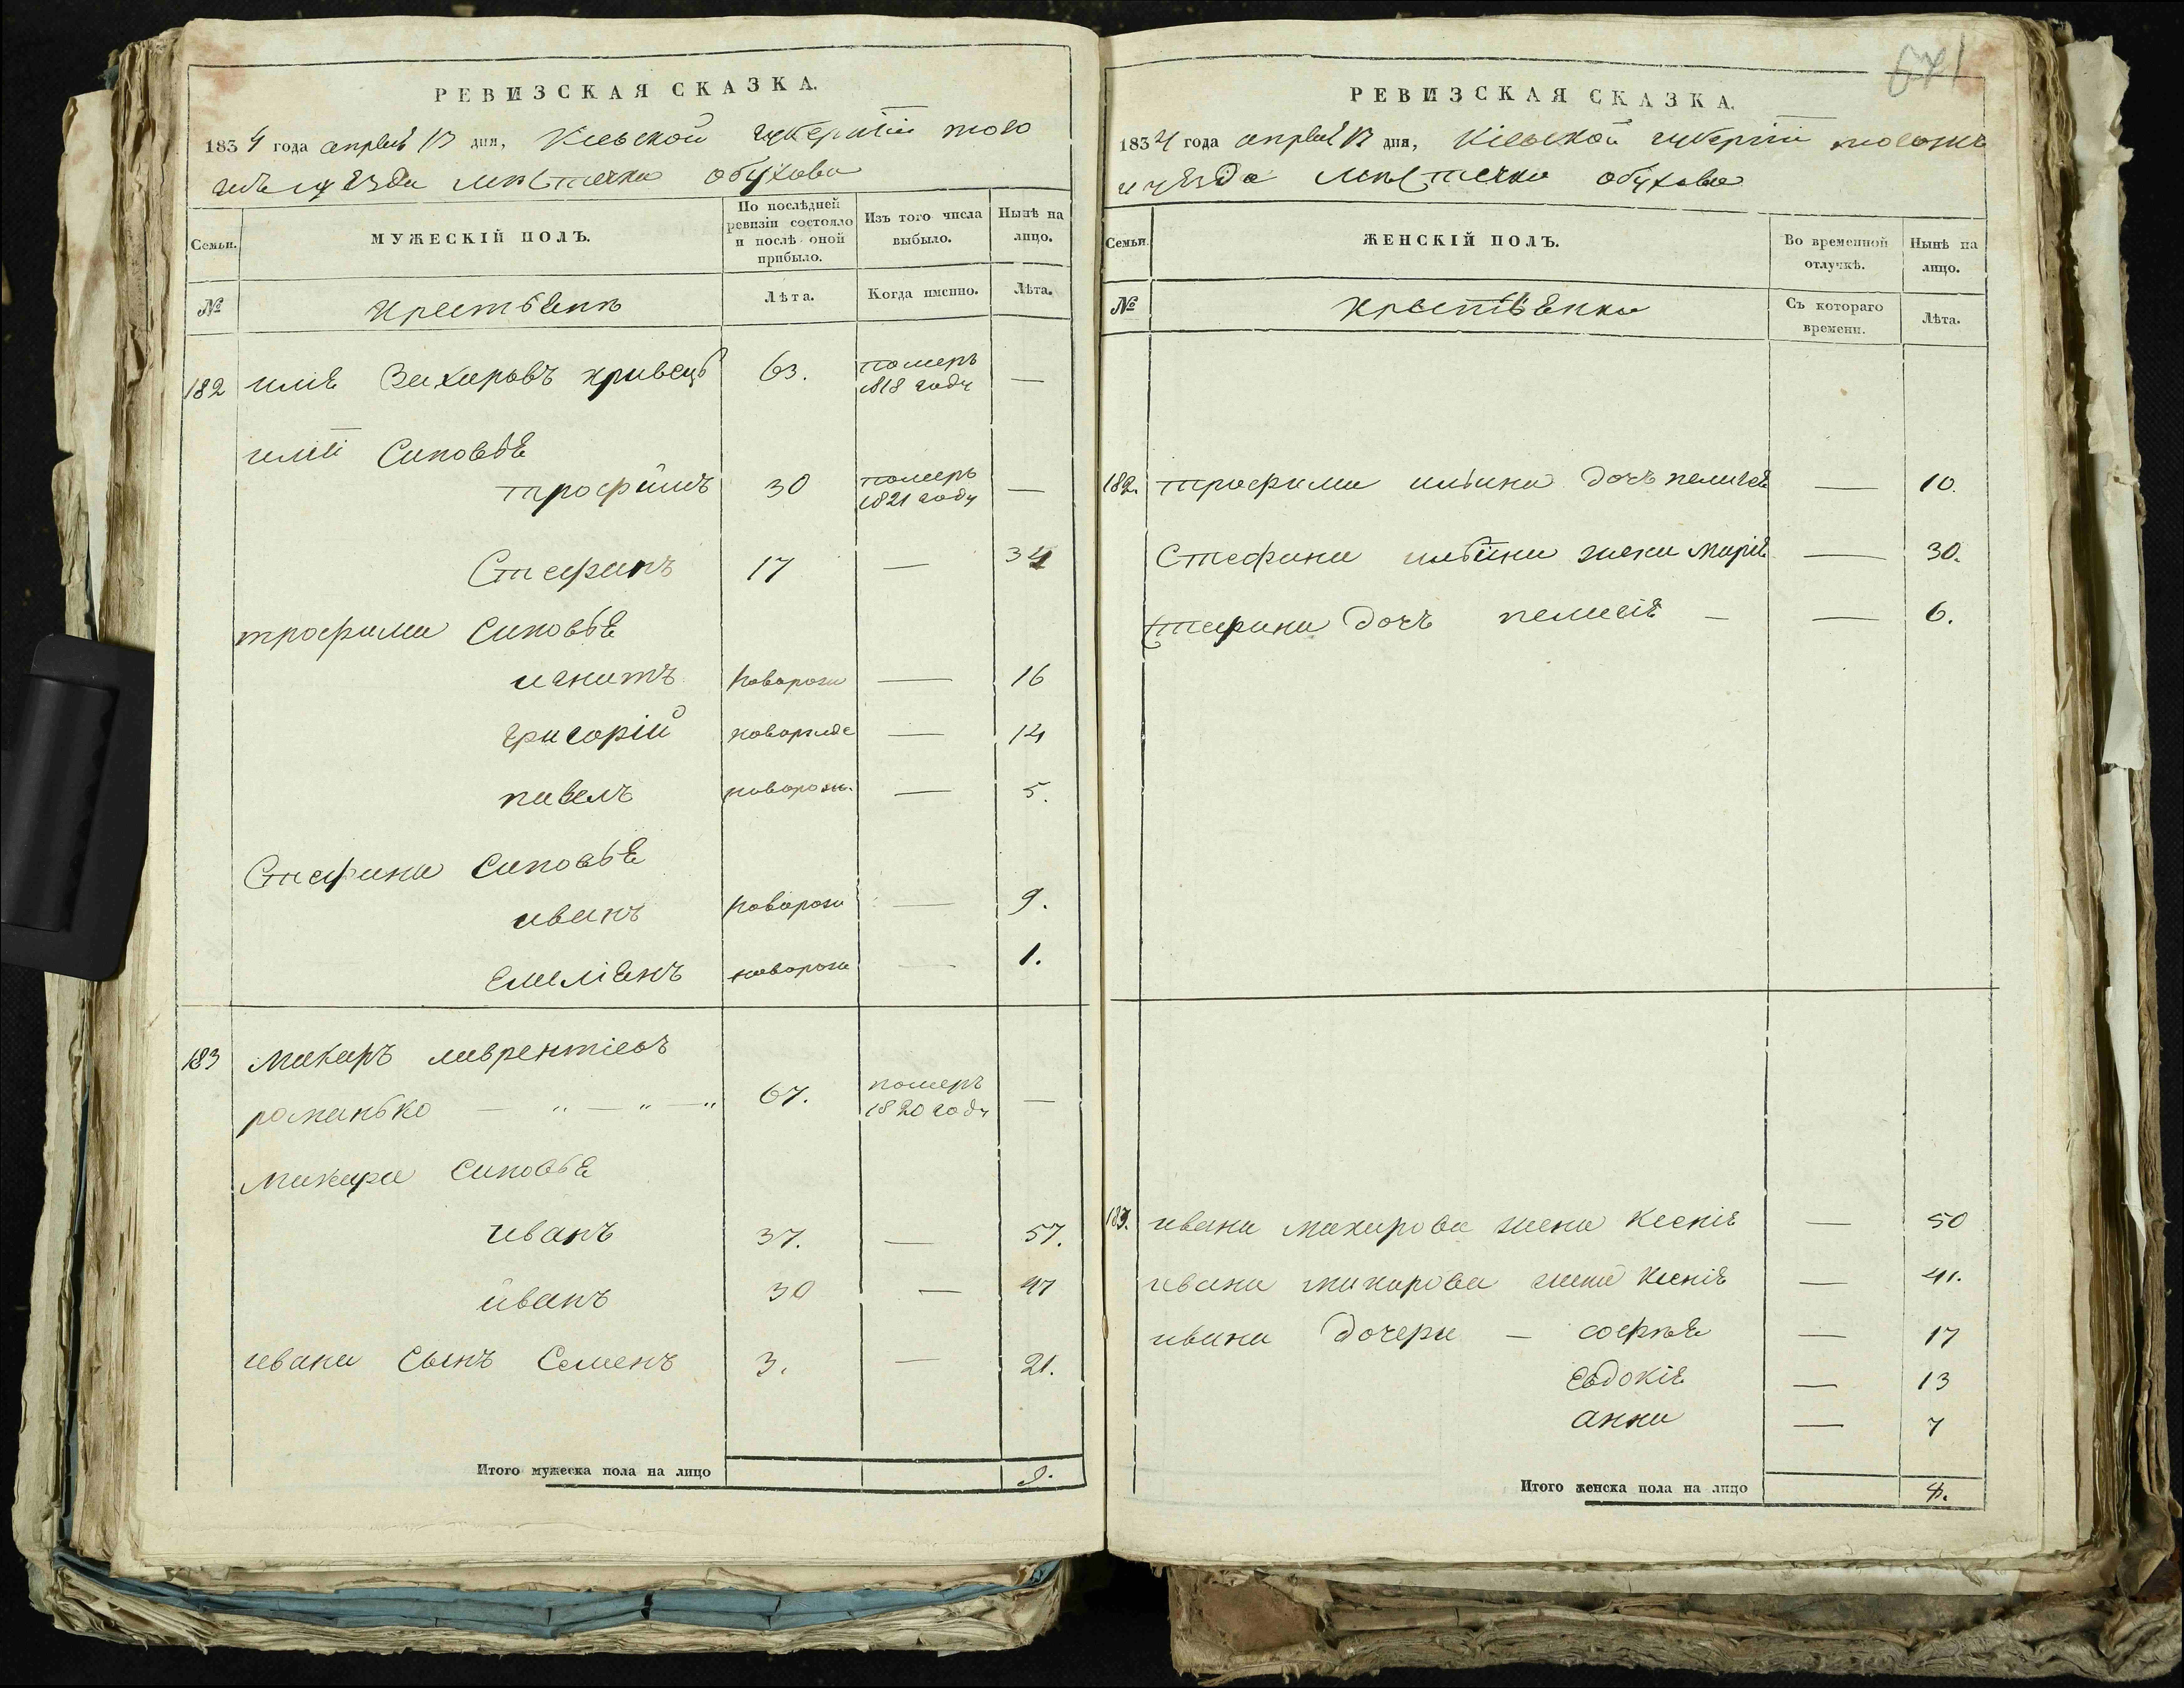 РЕВИЗСКАЯ СКАЗКА.
1834 года апреля 13 дня, Кіевской губерніи того
жъ уезда местечка обухова
Семьи. МУЖЕСКІЙ ПОЛЪ. По послѣдней ревизіи состояло и послѣ оной прибыло. Изъ того числа выбыло. Нынѣ на лицо.
№ крестьянъ Лѣта. Когда именно. Лѣта.
182 илія Захаровъ кривецъ 63. померъ 1818 году —
иліи Синовья
трофимъ 30 померъ 1821 году —
Стефанъ 17 — 34
трофима Синовья
игнатъ новорож — 16
григорій новорожде — 14
павелъ новорож. — 5.
Стефана Синовья
иванъ новорож — 9.
емеліянъ новорож — 1.
183 Макаръ лаврентіевъ
романько — " — " — " 67. померъ 1820 году —
Макара Синовья
иванъ 37. — 57.
иванъ 30 — 47
ивана Сынъ Семенъ 3. — 21.
Итого мужеска пола на лицо 9.
641
РЕВИЗСКАЯ СКАЗКА.
1834 года апреля 13 дня, Кіевской губерніи тогожъ
уезда местечка обухова
Семьи. ЖЕНСКІЙ ПОЛЪ. Во временной отлучкѣ. Нынѣ на лицо.
№ крестьянка Съ котораго времени. Лѣта.
182. трофима ильина дочъ пелагея — 10.
Стефана ильина жена марія — 30.
Стефана дочъ пелагія — — 6.
183. ивана макарова жена Ксенія — 50
ивана макарова жена Ксенія — 41.
ивана дочери — софія — 17
Евдокія — 13
анна — 7
Итого женска пола на лицо 8.